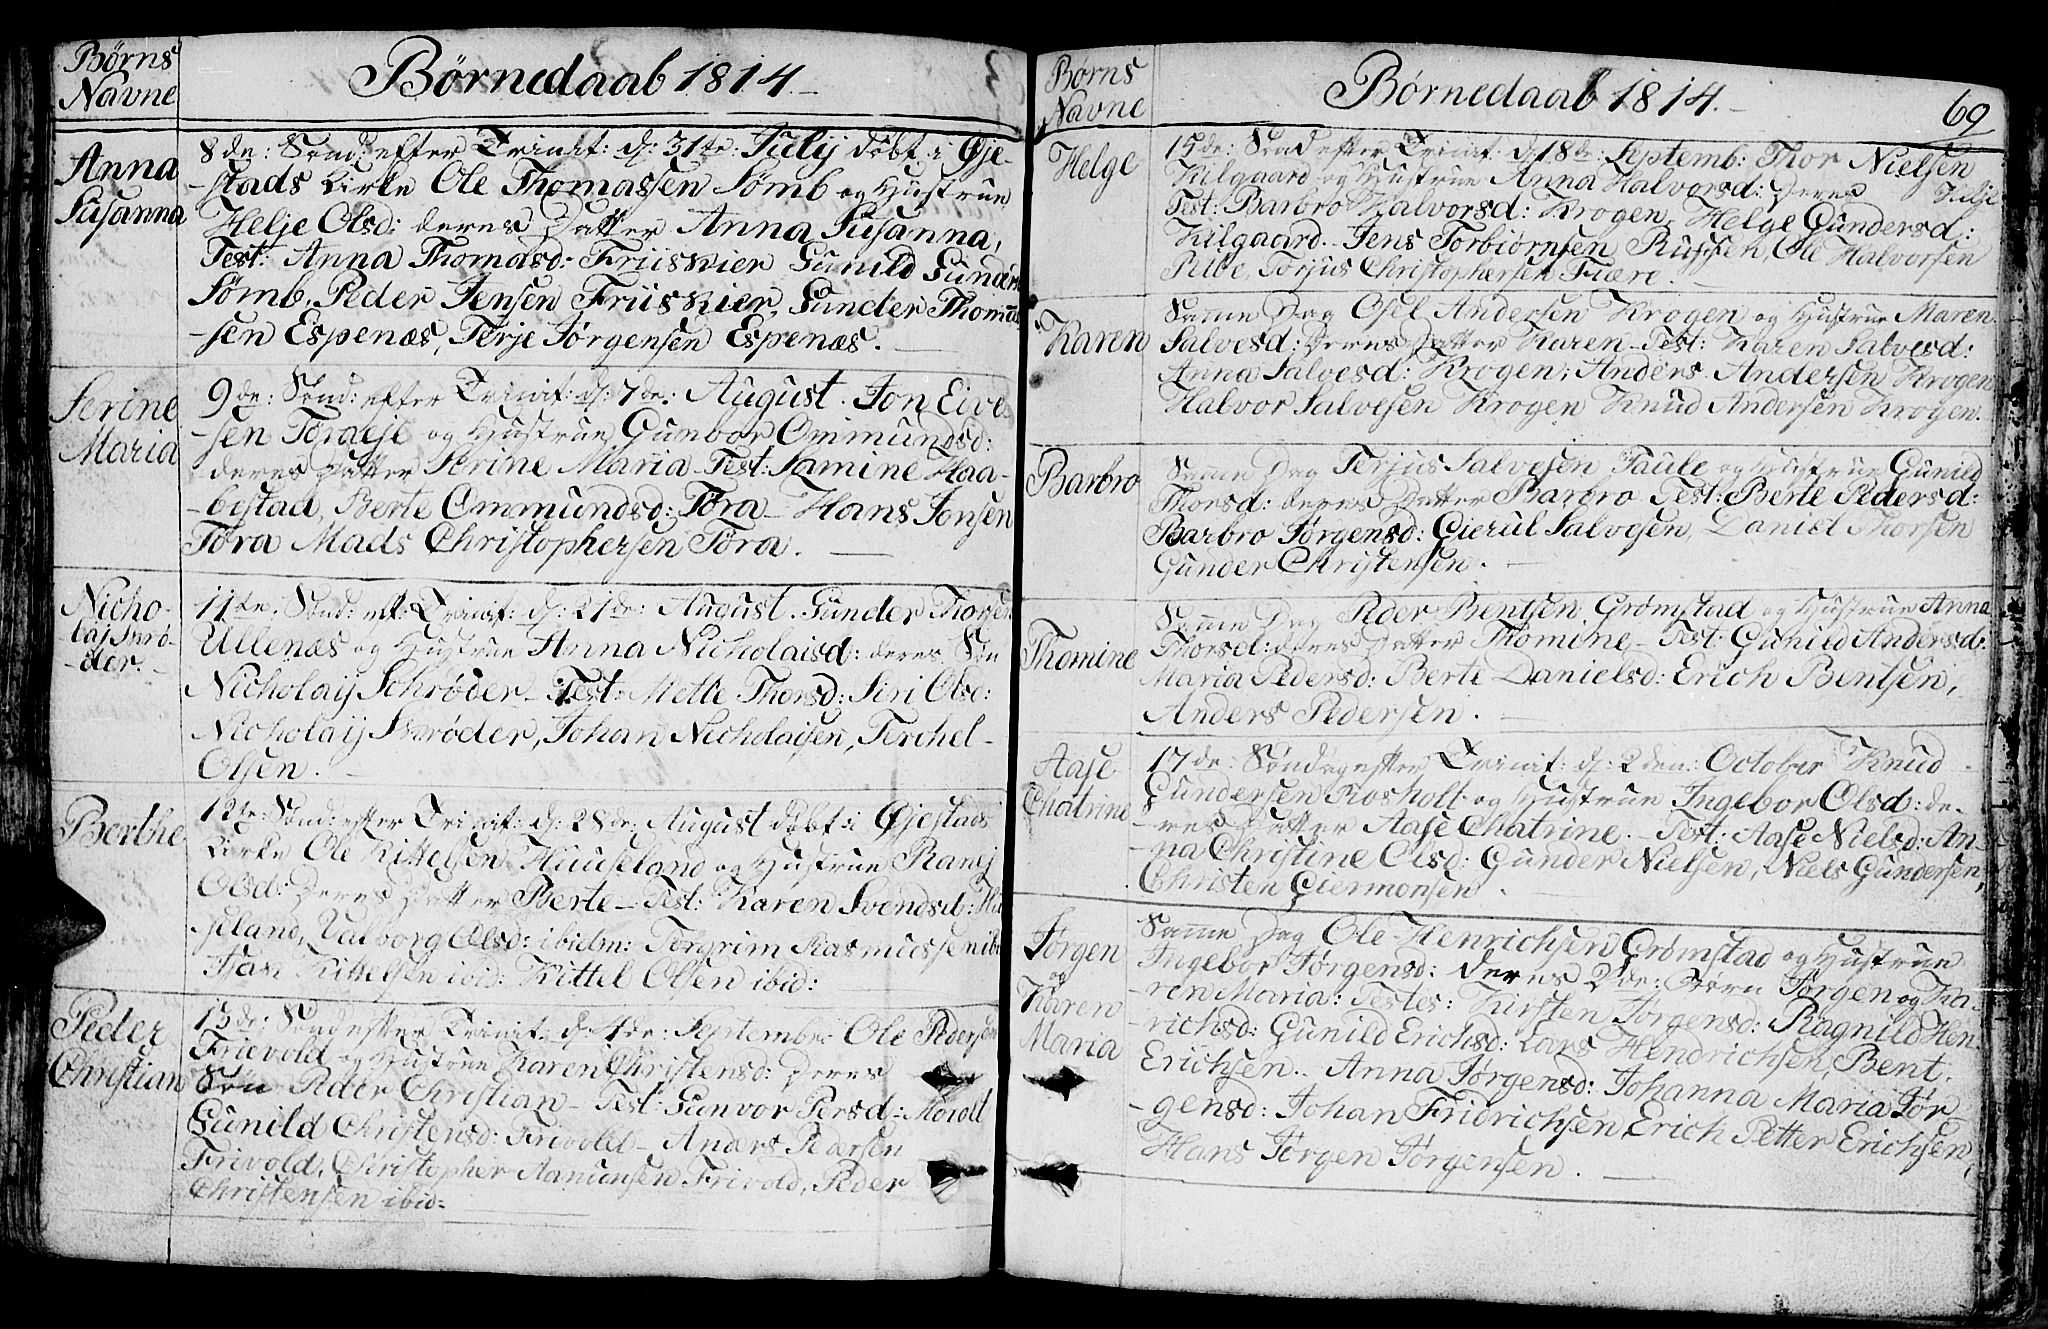 Børns
Navne
Børnedaab 1814.
Anna
Susanna
8de: Sønd: efter Trinit: d: 31te: Julij døbt i Øje-
-stads Kirke Ole Thomassen Sømb og Hustrue
Helje Olsd: deres Datter Anna Susanna,
Test: Anna Thomasd: Friiskier Gunild Gunders
Sømb, Peder Jensen Friiskier, Gunder Thomas
-sen Espenæs, Terje Jørgensen Espenæs.
Serine
Maria
9de: Sønd: efter Trinit: d: 7de: August. Jon Eive
-sen Töraese og Hustrue Gunbor Ommundsd:
deres Datter Serine Maria Test: Lamine Haa-
-bestad, Berte Ommundsd: Töra Hans Jonsen
Töra Mads Christophersen Töra.
Nicho-
laj Skrö-
-der.
11te: Sønd: eft: Trinit: d: 21de: August. Gunder Thorsen
Ullenæs og Hustrue Anna Nicholaisd: deres Søn
Nicholaij Schrøder Test: Mette Thorsd: Siri Olsd:
Nicholaij Skrøder, Johan Nicholaisen, Terchel-
Olsen.
Berthe
12te: Sønd: efter Trinit: d: 28de: August døbt i Øjestads
Kirke Ole Kittelsen Huuseland og Hustrue Ranej
Olsd: deres Datter Berte Test: Karen Svendsd: Hu
seland, Valborg Olsd: ibidm: Torgrim Rasmussen ibi
Jan Kittelsen ibid: Kittel Olsen ibid:
Peder
Christian
13de: Sønd efter Trinit: d: 4de: Septembr. Ole Pedersen
Frievold og Hustrue Karen Christensd: deres
Søn Peder Christian Test: Gunvor Persd: Moralt
Gunild Christensd: Frivold Anders Pedersen
Frivold, Christopher Aanunsen Frivold, Peder
Christensen ibid:
Børns
Navne
Børnedaab 1814.
69
Helge
15de: Sønd efter Trinit: d 18de: Septemb: Thor Nielsen
Kilgaard og Hustrue Anna Halvorsd: deres Helje
Test: Barbro Halvorsd: Krogen, Helge Gundersd:
Kilgaard. Jens Torbiörnsen Russen, Ole Halvorsen
Ribe, Torjus Christophersen Fiære.
Karen
Samme Dag Osel Andersen Krogen og Hustrue Maren
Salvesd: deres Datter Karen Test: Karen Salvesd:
Anna Salvesd: Krogen, Anders Andersen Krogen
Halvor Salvesen Krogen Knud Andersen Krogen.
Barbro
Samme Dag Terjus Salvesen Taule og Hustrue Gunild
Thorsd: deres Datter Barbro Test: Berte Pedersd:
Barbro Jørgensd: Gierul Salvesen, Daniel Thorsen
Gunder Christensen.
Thomine
Samme Dag Peder Bentsen Grømstad og Hustrue Anna
Thorsd: deres Datter Thomine Test: Gunild Andersd:
Maria Pedersd: Berte Danielsd: Erich Bentsen,
Anders Pedersen.
Aase
Chatrine
17de: Søndag efter Trinit: d: 2den: October Knud
Gundersen Rosholt og Hustrue Ingebor Olsd: de-
-res Datter Aase Chatrine. Test: Aase Nielsd: An-
-na Christine Olsd: Gunder Nielsen, Niels Gundersen,
Christen Giermonsen.
Jørgen
og
Karen
Maria
Samme Dag Ole Henrichsen Grømstad og Hustrue
Ingebor Jørgensd: deres 2de: Børn Jørgen og Ka-
-ren Maria: Testes: Kirsten Jørgensd: Ragnild Hen-
-richsd: Gunild Erichsd: Lars Hendrichsen, Bent
Erichsen. Anna Jørgensd: Johanna Maria Jør-
-gensd: Johan Fridrichsen, Erich Petter Erichsen,
Hans Jørgen Jørgensen.